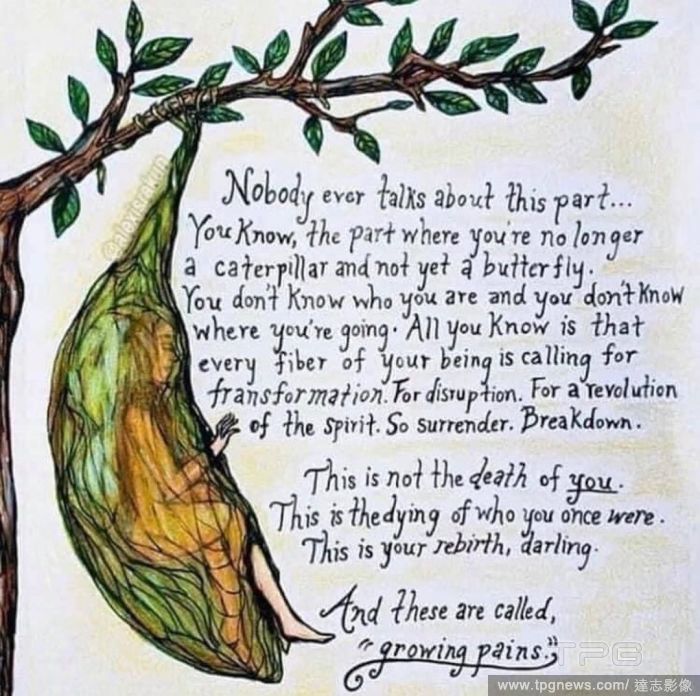 Nobody ever talks about this part...
You Know, the part where you're no longer
a caterpillar and not yet a butterfly.
You don't Know who you are and you don't Know
where you're going. All you Know is that
every fiber of your being is calling for
transformation. For disruption. For a revolution
of the spirit. So surrender. Breakdown.
This is not the death of you.
This is the dying of who you once were.
This is your rebirth, darling.
And these are called,
"growing pains."
TPG
www.tpgnews.com/ 達志影像